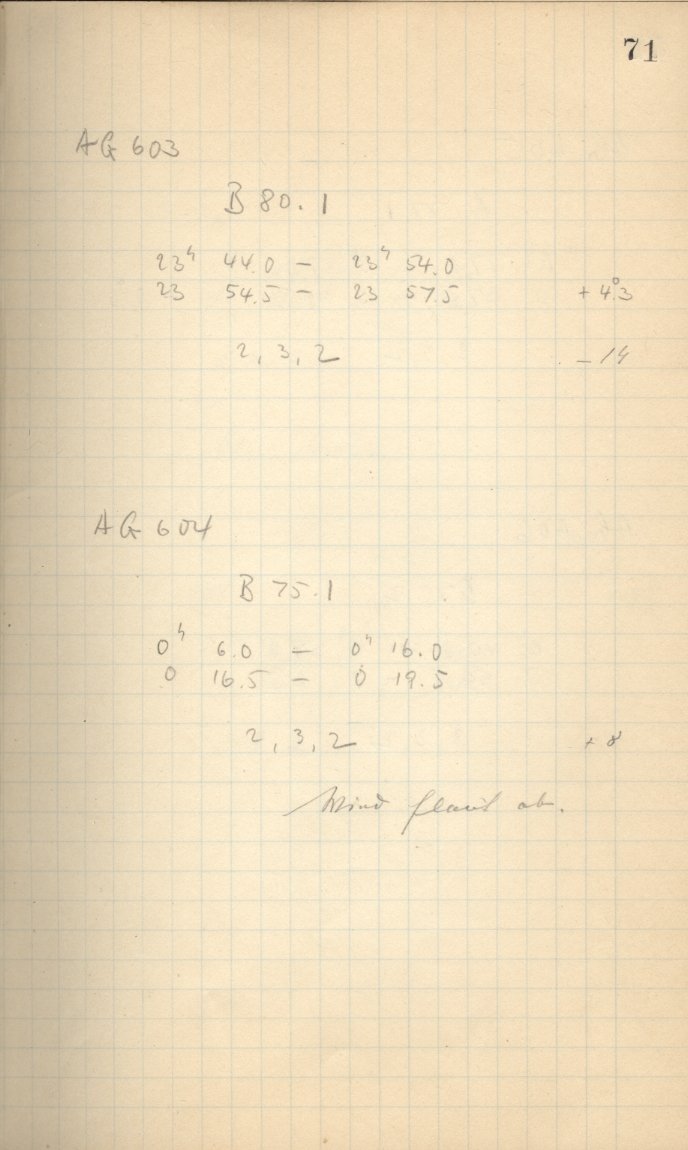 71
AG 603
B 80.1
23ʰ 44.0 — 23ʰ 54.0
23 54.5 — 23 57.5 +4°.3
2, 3, 2 — 14
AG 604
B 75.1
0ʰ 6.0 — 0ʰ 16.0
0 16.5 — 0 19.5
2, 3, 2 + 8
Wind flaut ab.